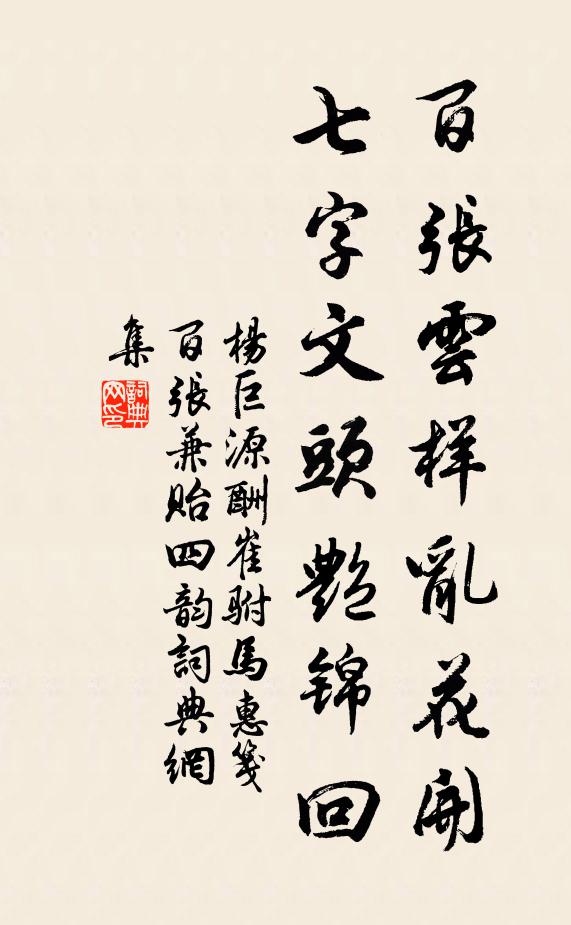 百張雲样亂花開
七字文頭艷錦回
楊巨源酬崔駙馬惠箋
百張兼貽四韵詞典網
集
詞典
网印